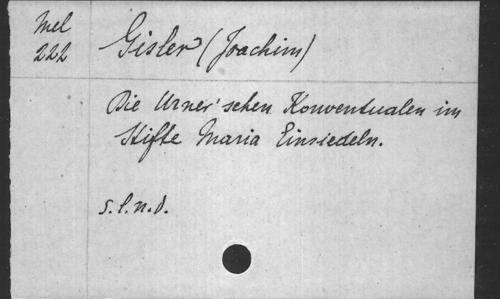 Mel
222
Gisler (Joachim)
Die Urner'schen Konventualen im
Stifte Maria Einsiedeln.
s.l.n.d.